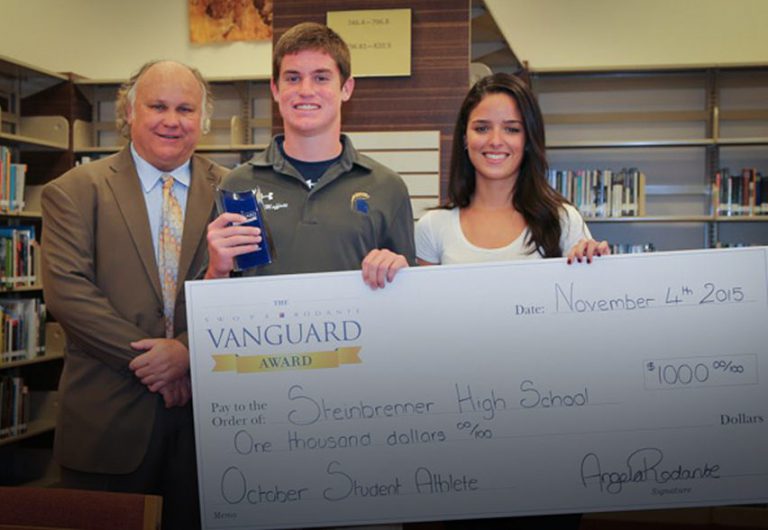 THE
SWOPE RODANTE
VANGUARD
AWARD
Date: November 4th 2015
Pay to the
Order of: Steinbrenner High School
$1000 00/100
One thousand dollars 00/100 Dollars
October Student Athlete
Memo
Angela Rodante
Signature